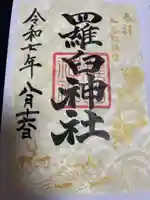 奉拝
羅臼神社
令和七年八月十六日